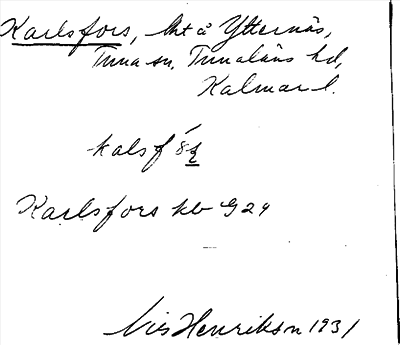 Karlsfors, lht å Ytternäs,
Tuna sn, Tunaläns hd,
Kalmar l.
kalsf
Karlsfors kb G 24
Nils Henrikson 1931